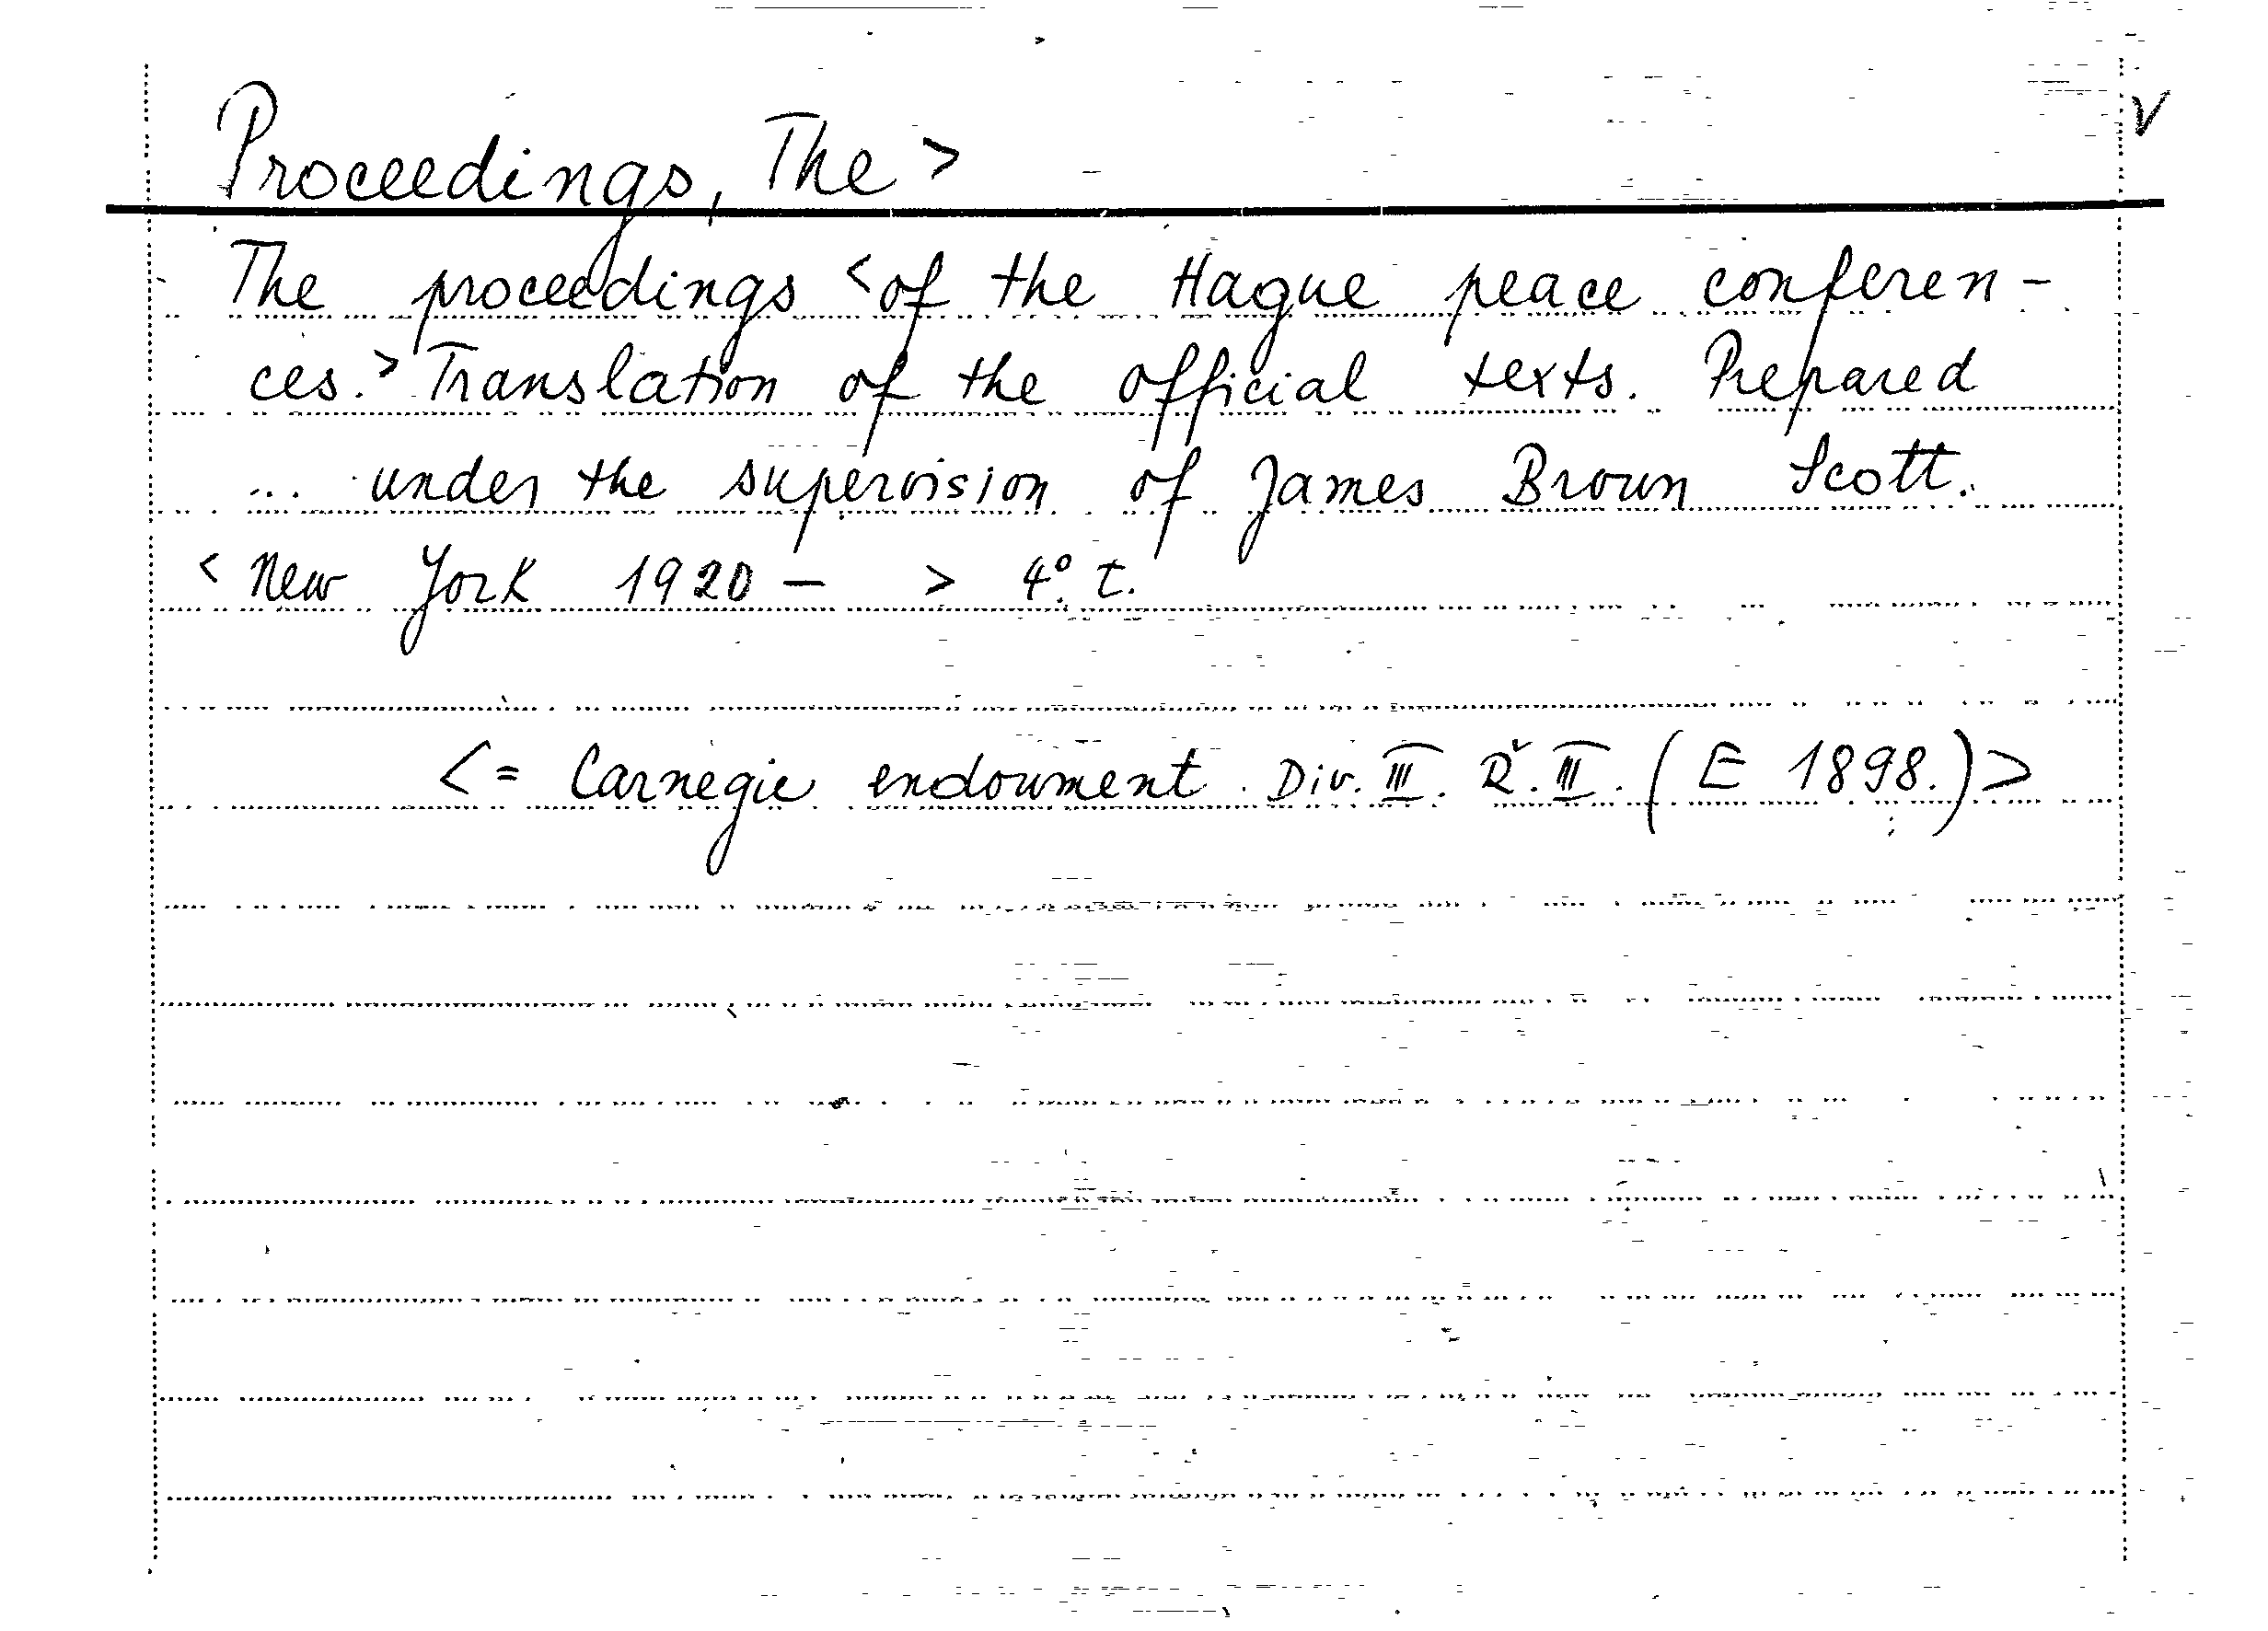 V
Proceedings, The >
The proceedings < of the Hague peace conferen-
ces. > Translation of the official texts. Prepared
... under the supervision of James Brown Scott.
< New York 1920 - > 4° t.
< = Carnegie endowment Div. III. Ř. II. ( E 1898.) >